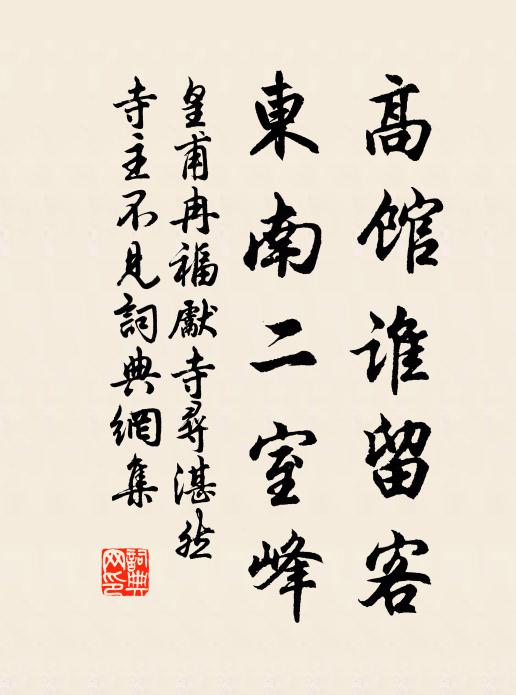 高館誰留客
東南二室峰
皇甫冉福獻寺尋湛然
寺主不見詞典網集
詞典
网印